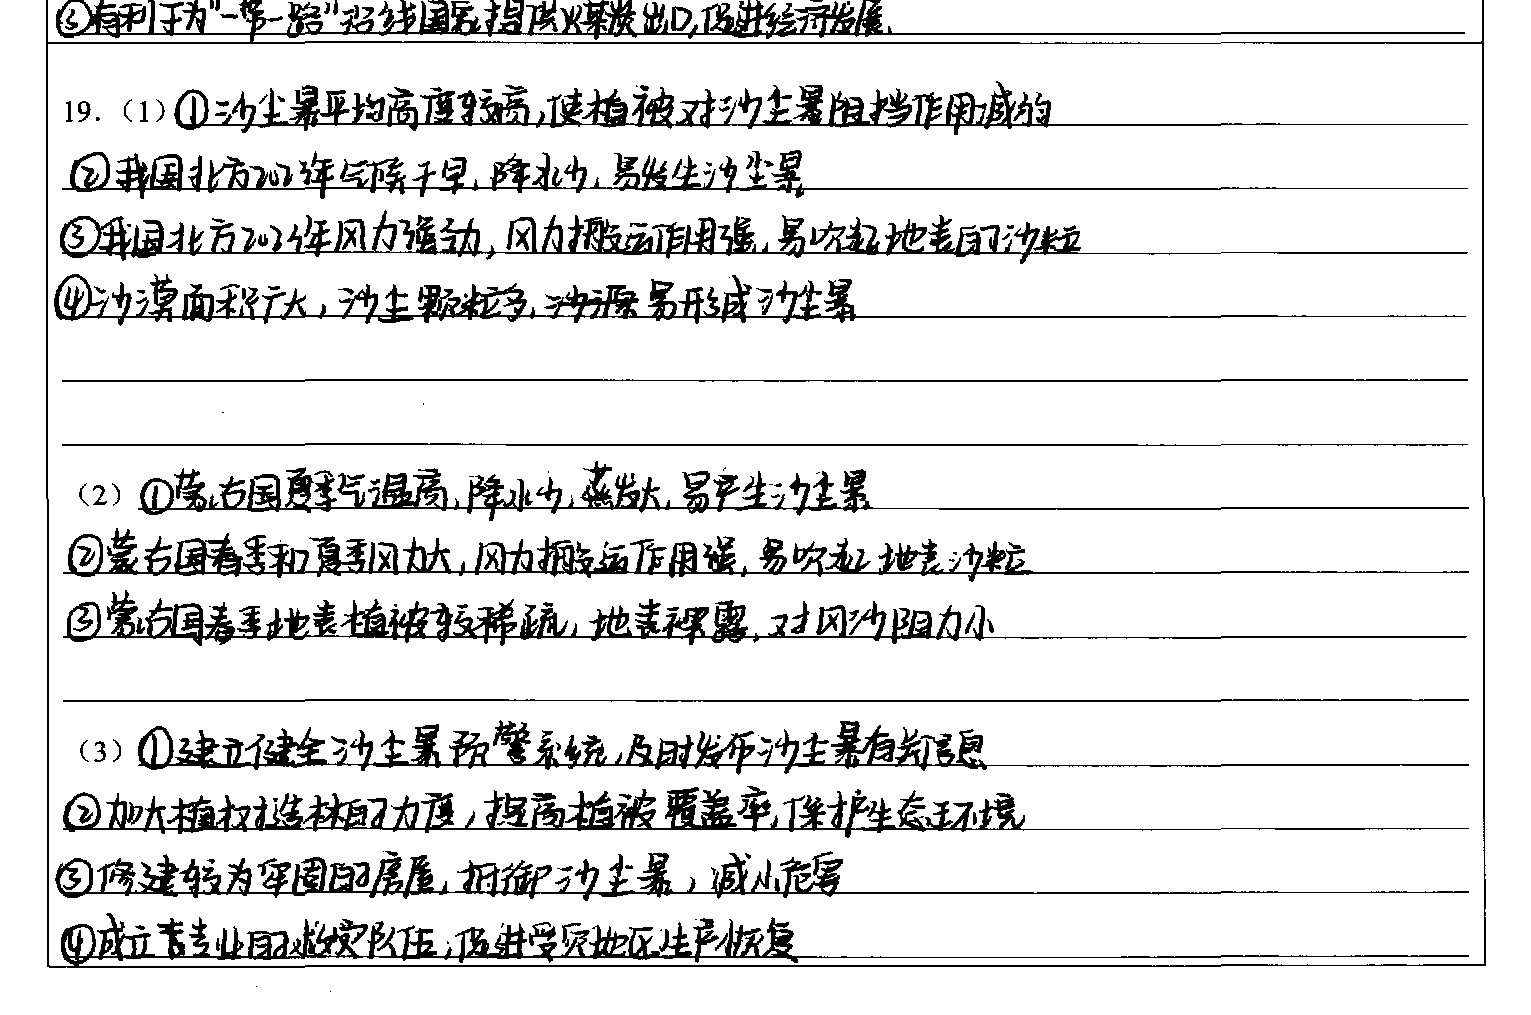 ⑥有利于为“一带一路”沿线国家提供煤炭出口,促进经济发展.
19.（1）①沙尘暴平均高度较高,使植被对沙尘暴阻挡作用减弱
②我国北方2023年气候干旱,降水少,易发生沙尘暴
③我国北方2023年风力强劲,风力搬运作用强,易吹起地表的沙粒
④沙漠面积广大,沙尘颗粒多,易形成沙尘暴
（2）①蒙古国夏季气温高,降水少,蒸发大,易产生沙尘暴
②蒙古国春季和夏季风力大,风力搬运作用强,易吹起地表沙粒
③蒙古国春季地表植被较稀疏,地表裸露,对风沙阻力小
（3）①建立健全沙尘暴预警系统,及时发布沙尘暴有关信息
②加大植树造林的力度,提高植被覆盖率,保护生态环境
③修建较为牢固的房屋,抵御沙尘暴,减小危害
④成立专业的救灾队伍,促进受灾地区生产恢复